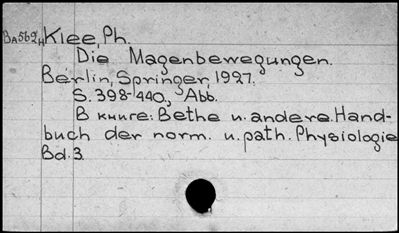 Ba562н Klee, Ph.
Die Magenbewegungen.
Berlin, Springer, 1927.
S. 398-440, Abb.
В книге: Bethe u. andere. Hand-
buch der norm. u. path. Physiologie
Bd. 3.